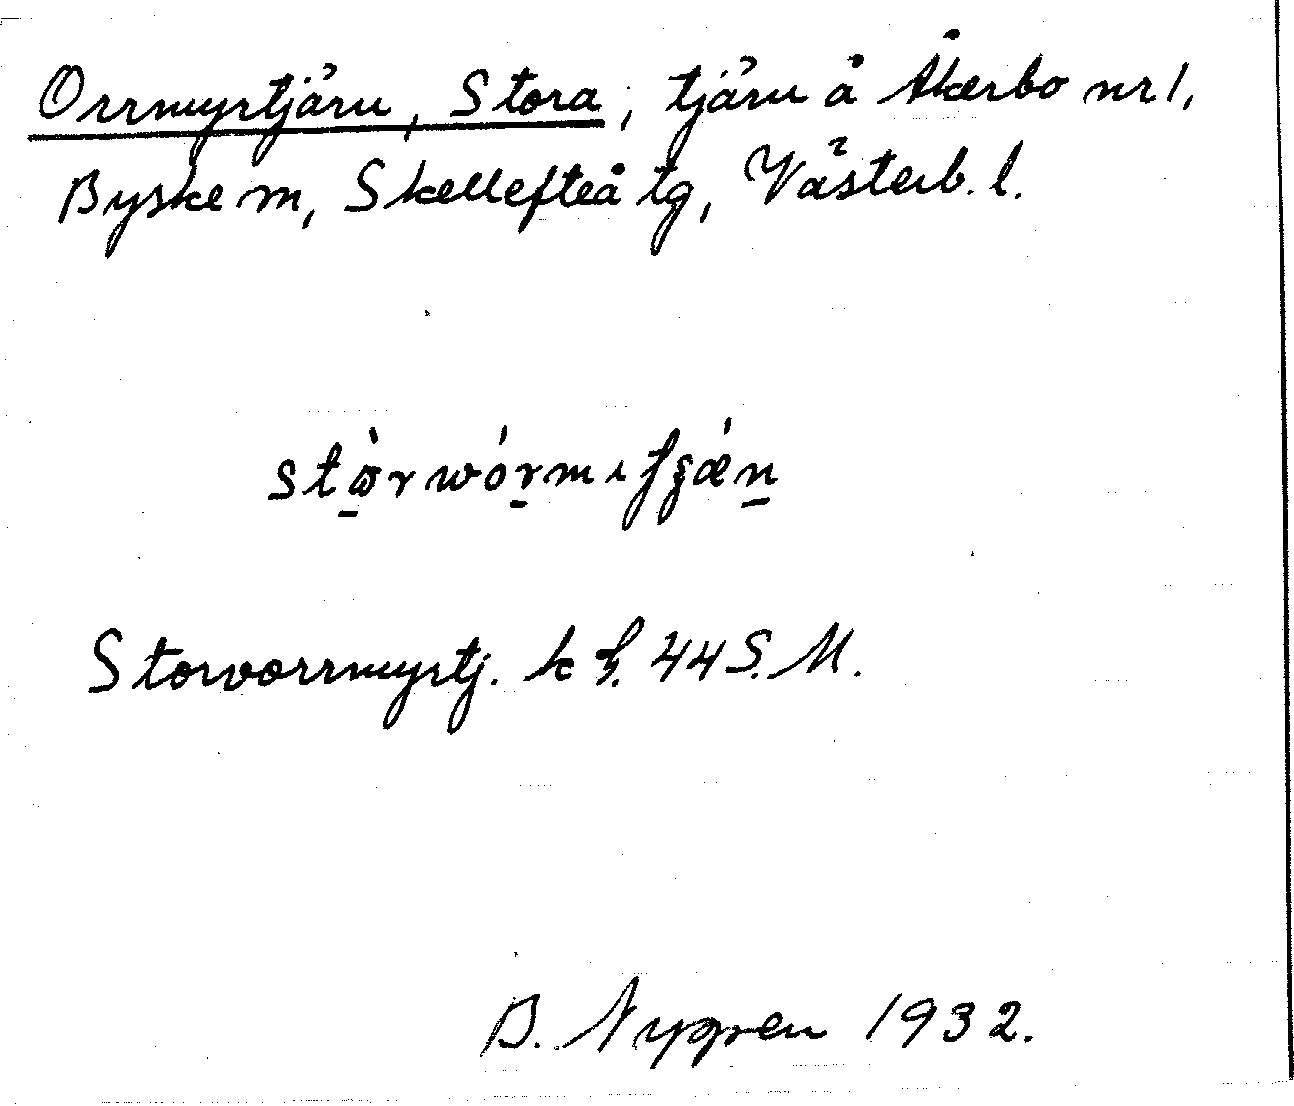 Orrmyrtjärn, Stora, tjärn å Åkerbo nr 1,
Byske m, Skellefteå tg, Västerb. l.
Storvorrmyrtj. k f. 44 S. M.
B. Nygren 1932.